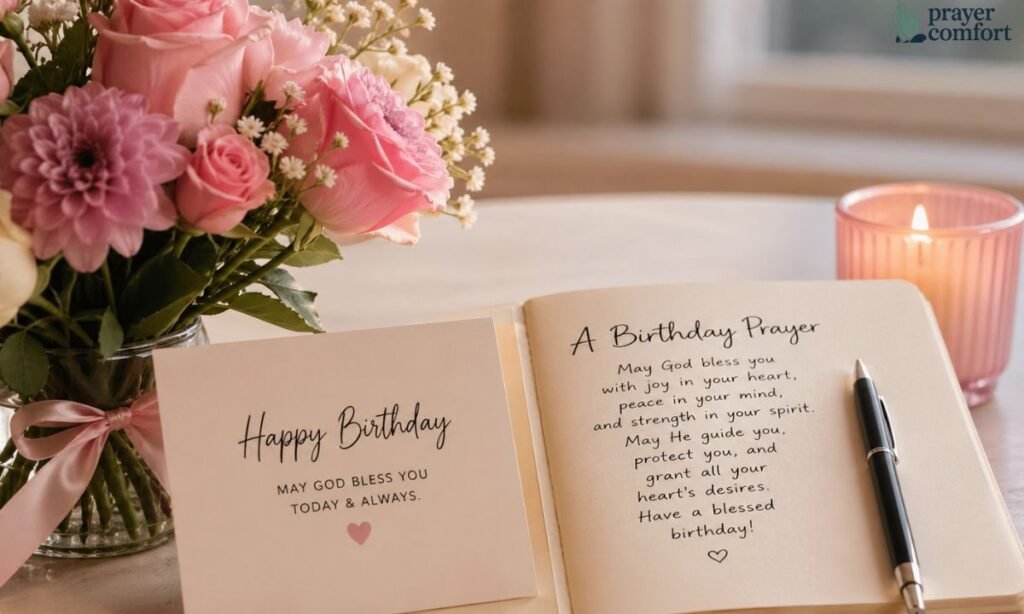 prayer
comfort
Happy Birthday
MAY GOD BLESS YOU
TODAY & ALWAYS.
A Birthday Prayer
May God bless you
with joy in your heart,
peace in your mind,
and strength in your spirit.
May He guide you,
protect you, and
grant all your
heart's desires.
Have a blessed
birthday!